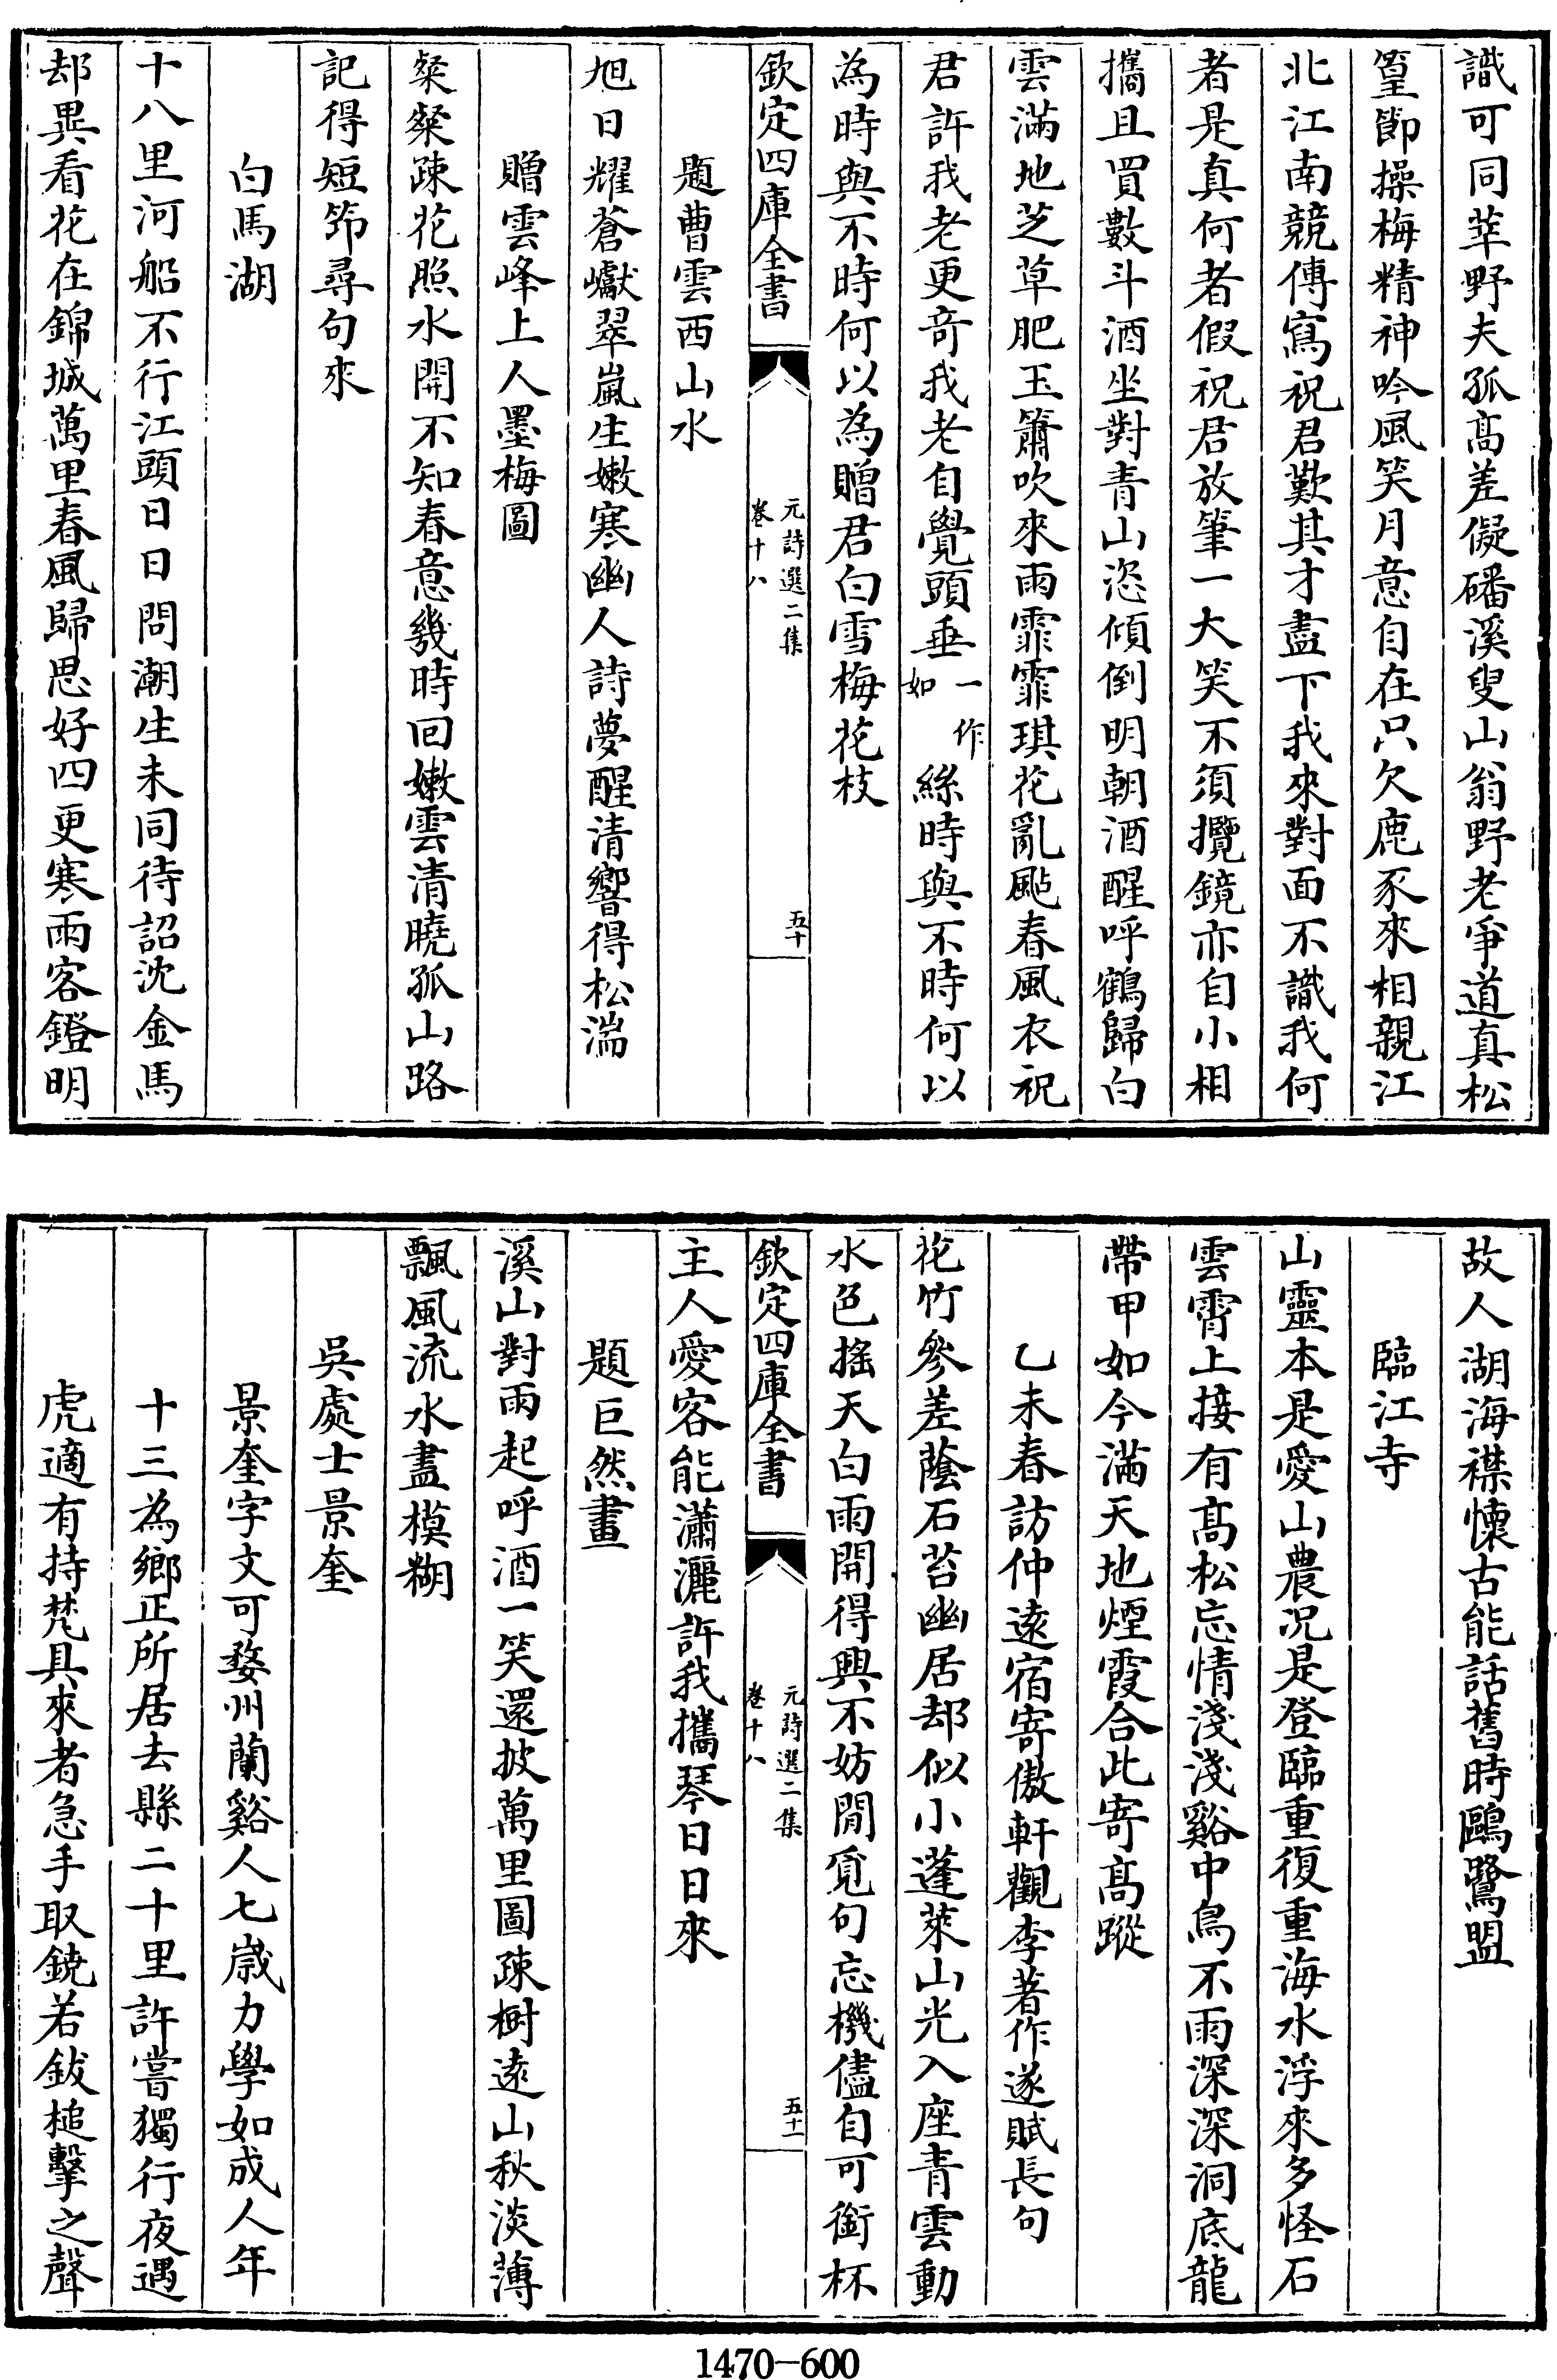 識可同莘野夫孤髙差儗磻溪叟山翁野老爭道真松
篁節操梅精神吟風笑月意自在只欠鹿豕來相親江
北江南競傳寫祝君歎其才盡下我來對面不識我何
者是真何者假祝君放筆一大笑不須攬鏡亦自小相
攜且買數斗酒坐對青山恣傾倒明朝酒醒呼鶴歸白
雲滿地芝草肥玉簫吹來雨霏霏琪花亂颭春風衣祝
君許我老更奇我老自覺頭垂一作如絲時與不時何以
為時與不時何以為贈君白雪梅花枝
欽定四庫全書
元詩選二集
卷十八
五十
題曹雲西山水
旭日耀蒼巘翠嵐生嫩寒幽人詩夢醒清響得松湍
贈雲峰上人墨梅圖
粲粲疎花照水開不知春意幾時回嫩雲清曉孤山路
記得短笻尋句來
白馬湖
十八里河船不行江頭日日問潮生未同待詔沈金馬
却異看花在錦城萬里春風歸思好四更寒雨客鐙明
故人湖海襟懷古能話舊時鷗鷺盟
臨江寺
山靈本是愛山農况是登臨重復重海水浮來多怪石
雲霄上接有髙松忘情淺淺谿中鳥不雨深深洞底龍
帶甲如今滿天地煙霞合此寄髙蹤
乙未春訪仲逺宿寄傲軒觀李著作遂賦長句
花竹參差蔭石苔幽居却似小蓬萊山光入座青雲動
水色摇天白雨開得興不妨閒覓句忘機儘自可銜杯
欽定四庫全書
元詩選二集
卷十八
五十一
主人愛客能瀟灑許我攜琴日日來
題巨然畫
溪山對雨起呼酒一笑還披萬里圖疎樹逺山秋淡薄
飄風流水盡模糊
吳處士景奎
景奎字文可婺州蘭谿人七歲力學如成人年
十三為鄉正所居去縣二十里許嘗獨行夜遇
虎適有持梵具來者急手取鐃若鈸槌擊之聲
1470-600